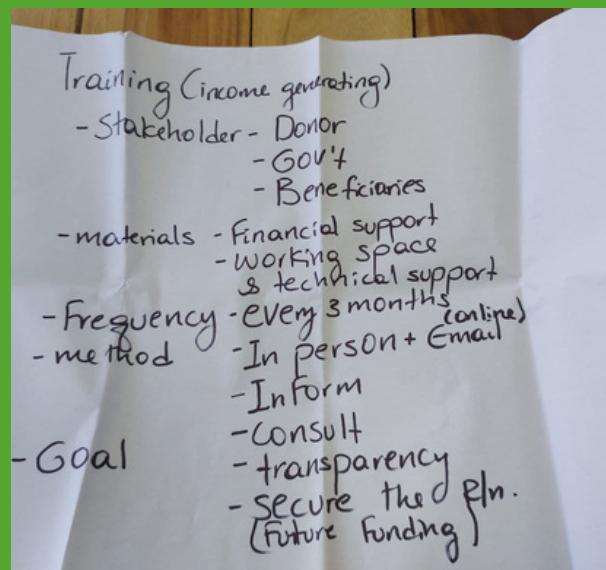 Training (income generating)
- Stakeholder - Donor
- Gov't
- Beneficiaries
- materials - Financial support
- working space
& technical support
- Frequency - every 3 months
- method - In person + Email (online)
- Inform
- Consult
- Goal - transparency
- secure the
(Future Funding)